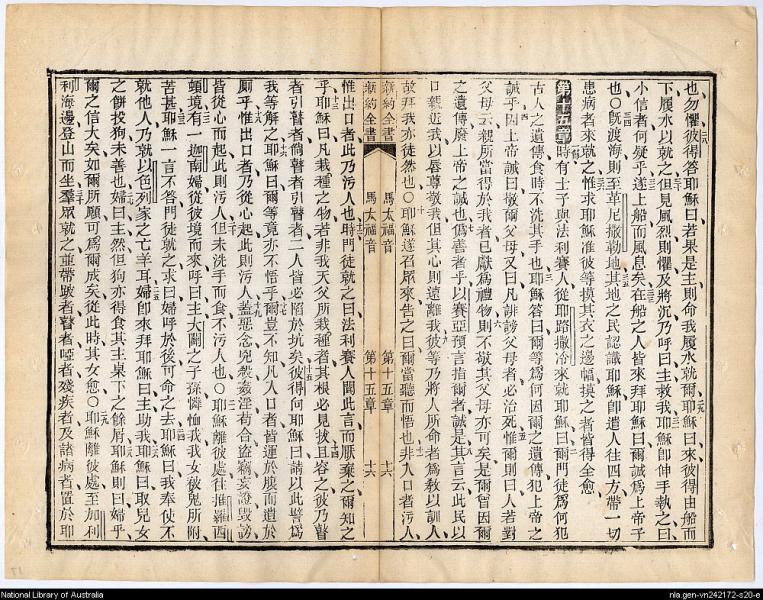 也勿懼彼得答耶穌曰若果是主則命我履水就爾耶穌曰來彼得由船而
下履水以就之但見風烈則懼及將沉乃呼曰主救我耶穌卽伸手執之曰
小信者何疑乎遂上船而風息矣在船之人皆來拜耶穌曰爾誠爲上帝子
也〇旣渡海則至革尼撒勒地其地之民認識耶穌卽遣人往四方帶一切
患病者來就之惟求耶穌准彼等摸其衣之邊幅摸之者皆得全愈
第十五章時有士子與法利賽人從耶路撒冷來就耶穌曰爾門徒爲何犯
古人之遺傳食時不洗其手也耶穌答曰爾等爲何因爾之遺傳犯上帝之
誡乎因上帝誡曰敬爾父母又曰凡誹謗父母者必治死惟爾則曰人若對
父母云親所當得於我者已獻爲禮物則不敬其父母亦可矣是爾曾因爾
之遺傳廢上帝之誡也僞善者乎以賽亞預言指爾者誠是其言云此民以
口親近我以唇尊敬我但其心則遠離我彼等乃將人所命者爲敎以訓人
故拜我亦徒然也〇耶穌遂召眾來告之曰爾當聽而悟也非入口者污人
新約全書 馬太福音 第十五章 十六
新約全書 馬太福音 第十五章 十六
惟出口者此乃污人也時門徒就之曰法利賽人聞此言而厭棄之爾知之
乎耶穌曰凡栽種之物若非我天父所栽種者其根必見拔且容之彼乃瞽
者引瞽者倘瞽者引瞽者二人皆必陷於坑矣彼得向耶穌曰請以此譬爲
我等解之耶穌曰爾等竟亦不悟乎爾豈不知凡入口者皆運於腹而遺於
廁乎惟出口者乃從心起此則污人蓋惡念兇殺姦淫苟合盜竊妄證毀謗
皆從心而起此則污人但未洗手而食不污人也〇耶穌離彼處往推羅西
頓境有一迦南婦從彼境而來呼曰主大闢之子孫憐恤我我女被鬼所附
苦甚耶穌一言不答門徒就之求曰婦呼於後可命之去耶穌曰我奉使不
就他人乃就以色列家之亡羊耳婦卽來拜耶穌曰主助我耶穌曰取兒女
之餅投狗未善也婦曰主然但狗亦得食其主桌下之餘屑耶穌則曰婦乎
爾之信大矣如爾所願可爲爾成矣從此時其女愈〇耶穌離彼處至加利
利海邊登山而坐羣眾就之並帶跛者瞽者啞者殘疾者及諸病者置於耶
National Library of Australia
nla.gen-vn242172-s20-e